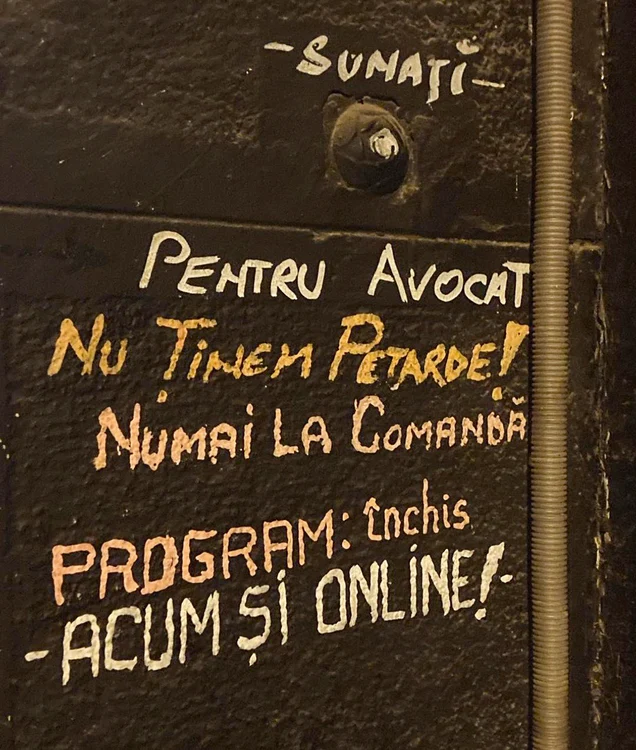 -SUNAȚI-
PENTRU AVOCAT
NU ȚINEM PETARDE!
NUMAI LA COMANDĂ
PROGRAM: închis
-ACUM ȘI ONLINE!-